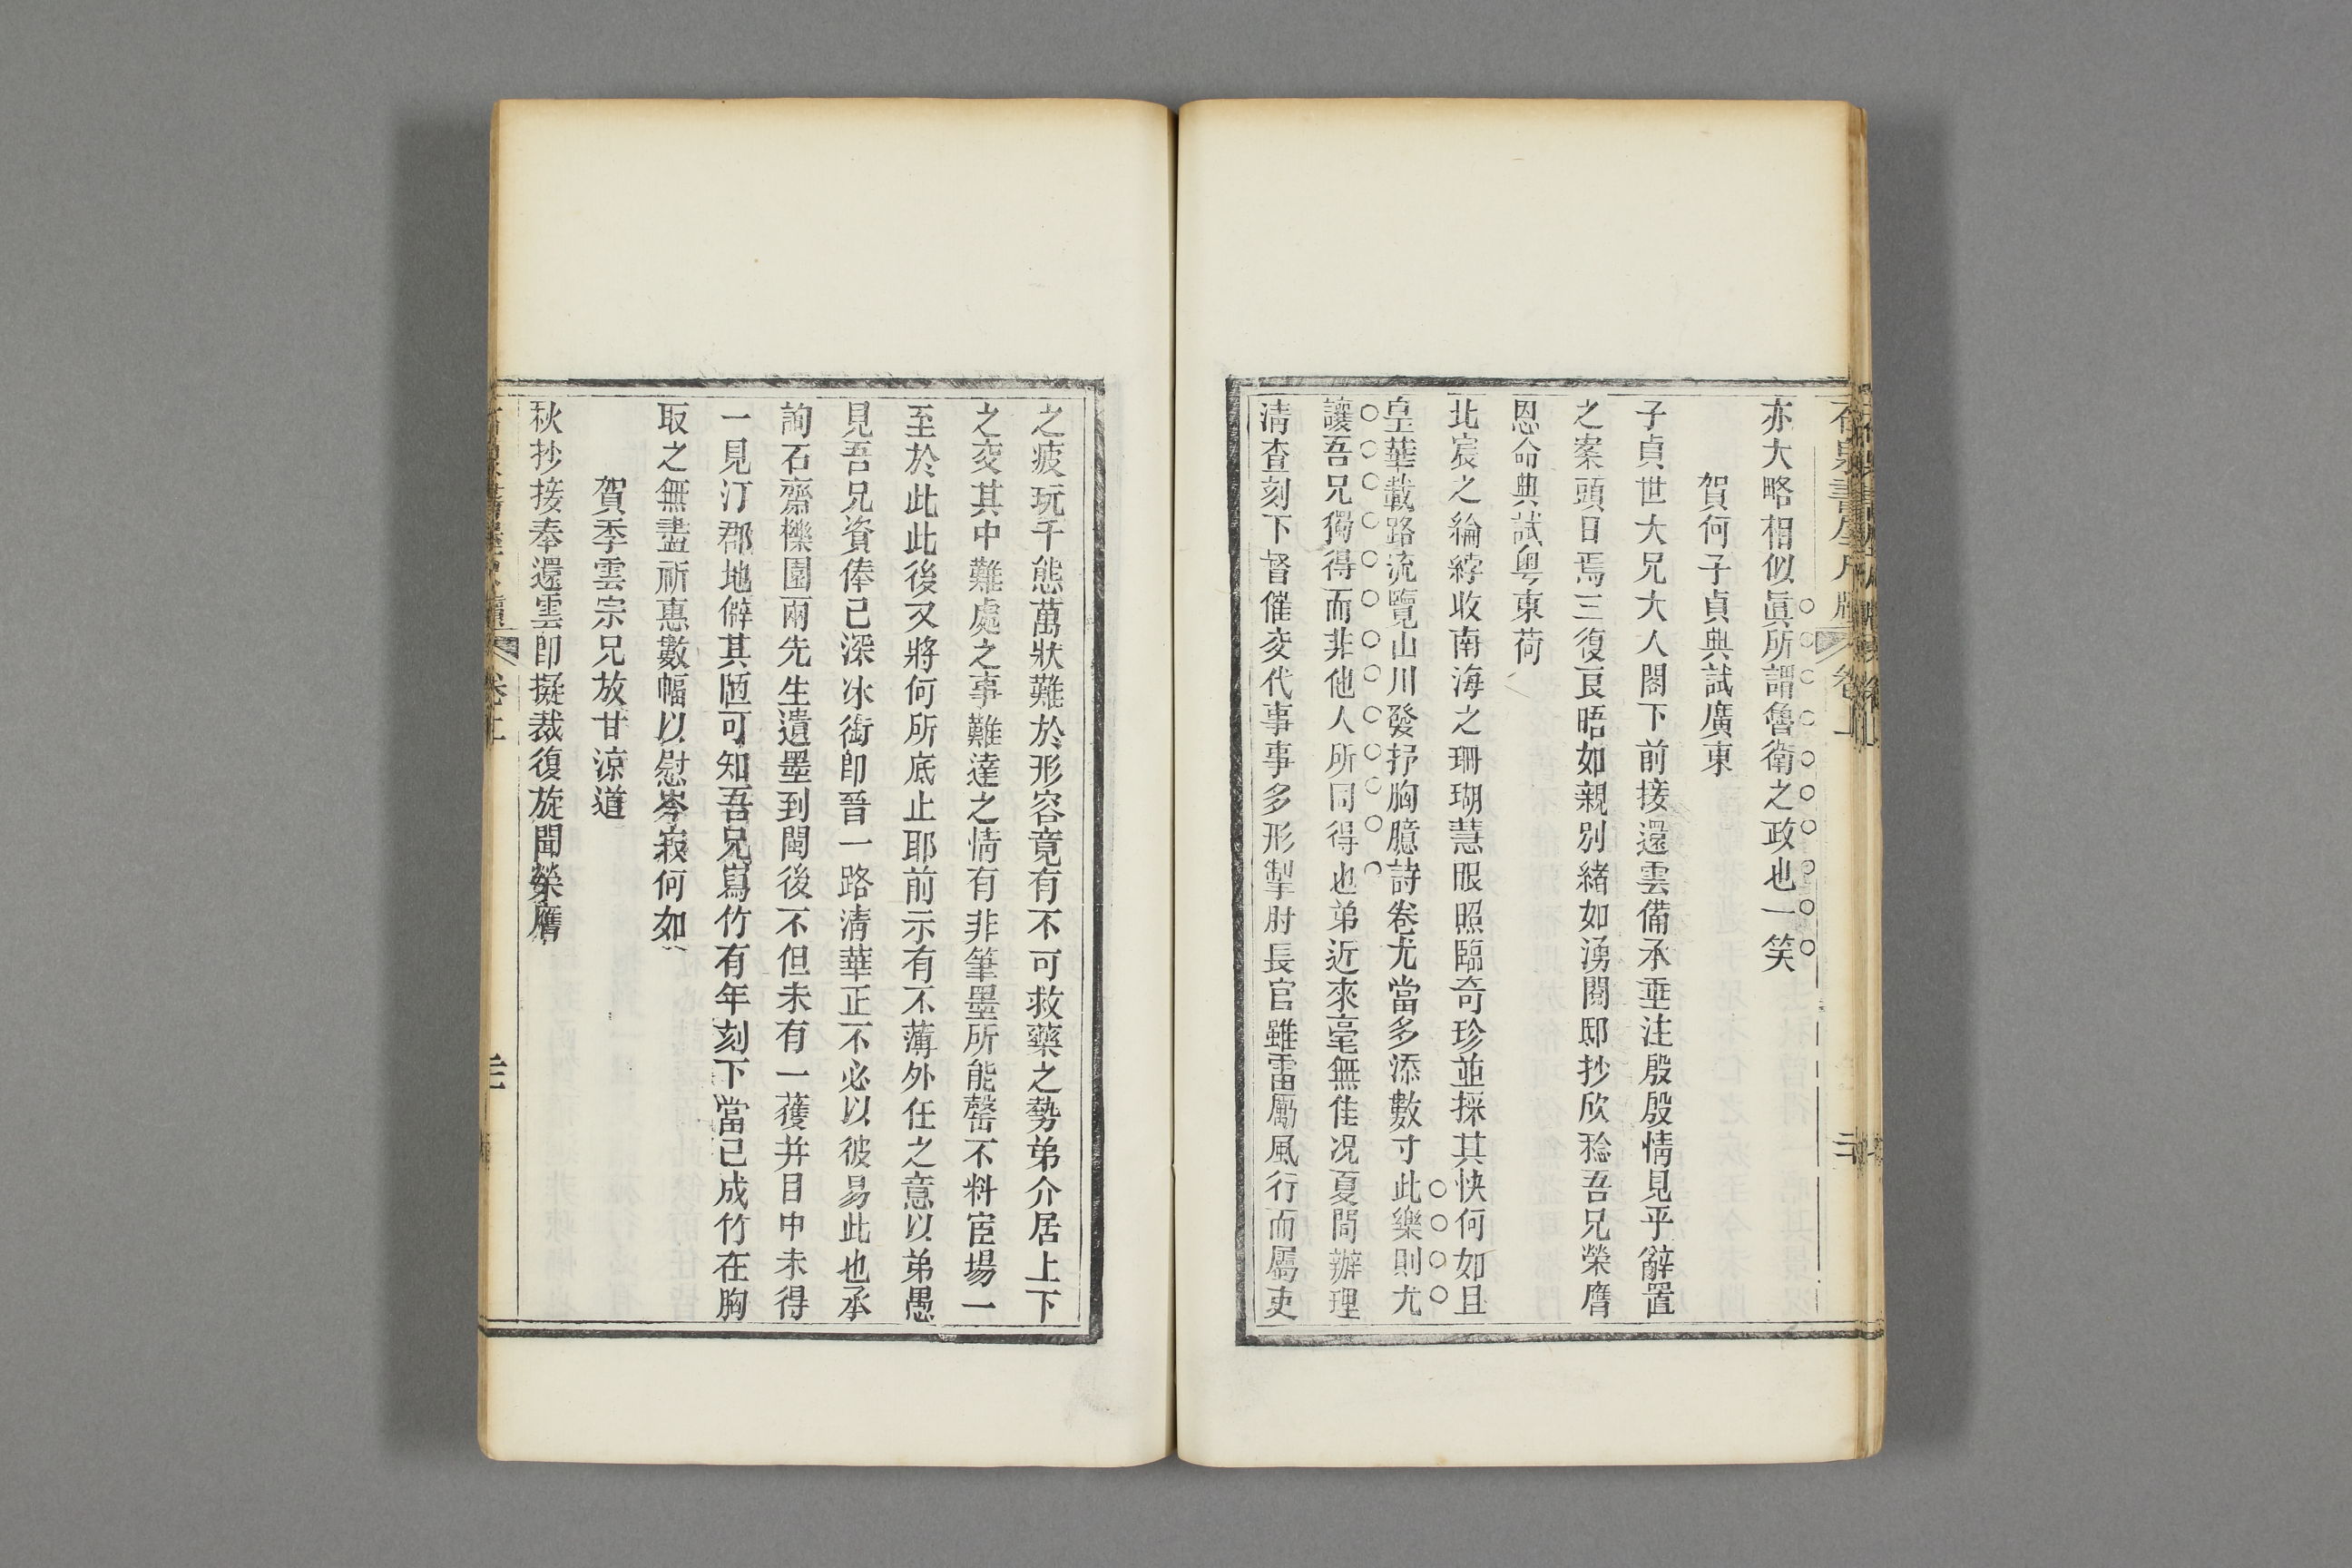 亦大略相似眞所謂魯衛之政也一笑
賀何子貞典試廣東
子貞世大兄大人閣下前接還雲備承垂注殷殷情見乎辭置
之案頭日焉三復良晤如親別緒如湧閱邸抄欣稔吾兄榮膺
恩命典試粤東荷
北宸之綸綍收南海之珊瑚慧眼照臨奇珍並採其快何如且
皇華載路流覽山川發抒胸臆詩卷尤當多添數寸此樂則尤
讓吾兄獨得而非他人所同得也弟近來毫無佳况夏間辦理
淸查刻下督催交代事事多形掣肘長官雖雷厲風行而屬吏
之疲玩千態萬狀難於形容竟有不可救藥之勢弟介居上下
之交其中難處之事難達之情有非筆墨所能罄不料宦場一
至於此此後又將何所底止耶前示有不薄外任之意以弟愚
見吾兄資俸已深冰銜卽晉一路淸華正不必以彼易此也承
詢石齋櫟園兩先生遺墨到閩後不但未有一獲并目中未得
一見汀郡地僻其陋可知吾兄寫竹有年刻下當已成竹在胸
取之無盡祈惠數幅以慰岑寂何如
賀季雲宗兄放甘涼道
秋抄接奉還雲卽擬裁復旋聞榮膺